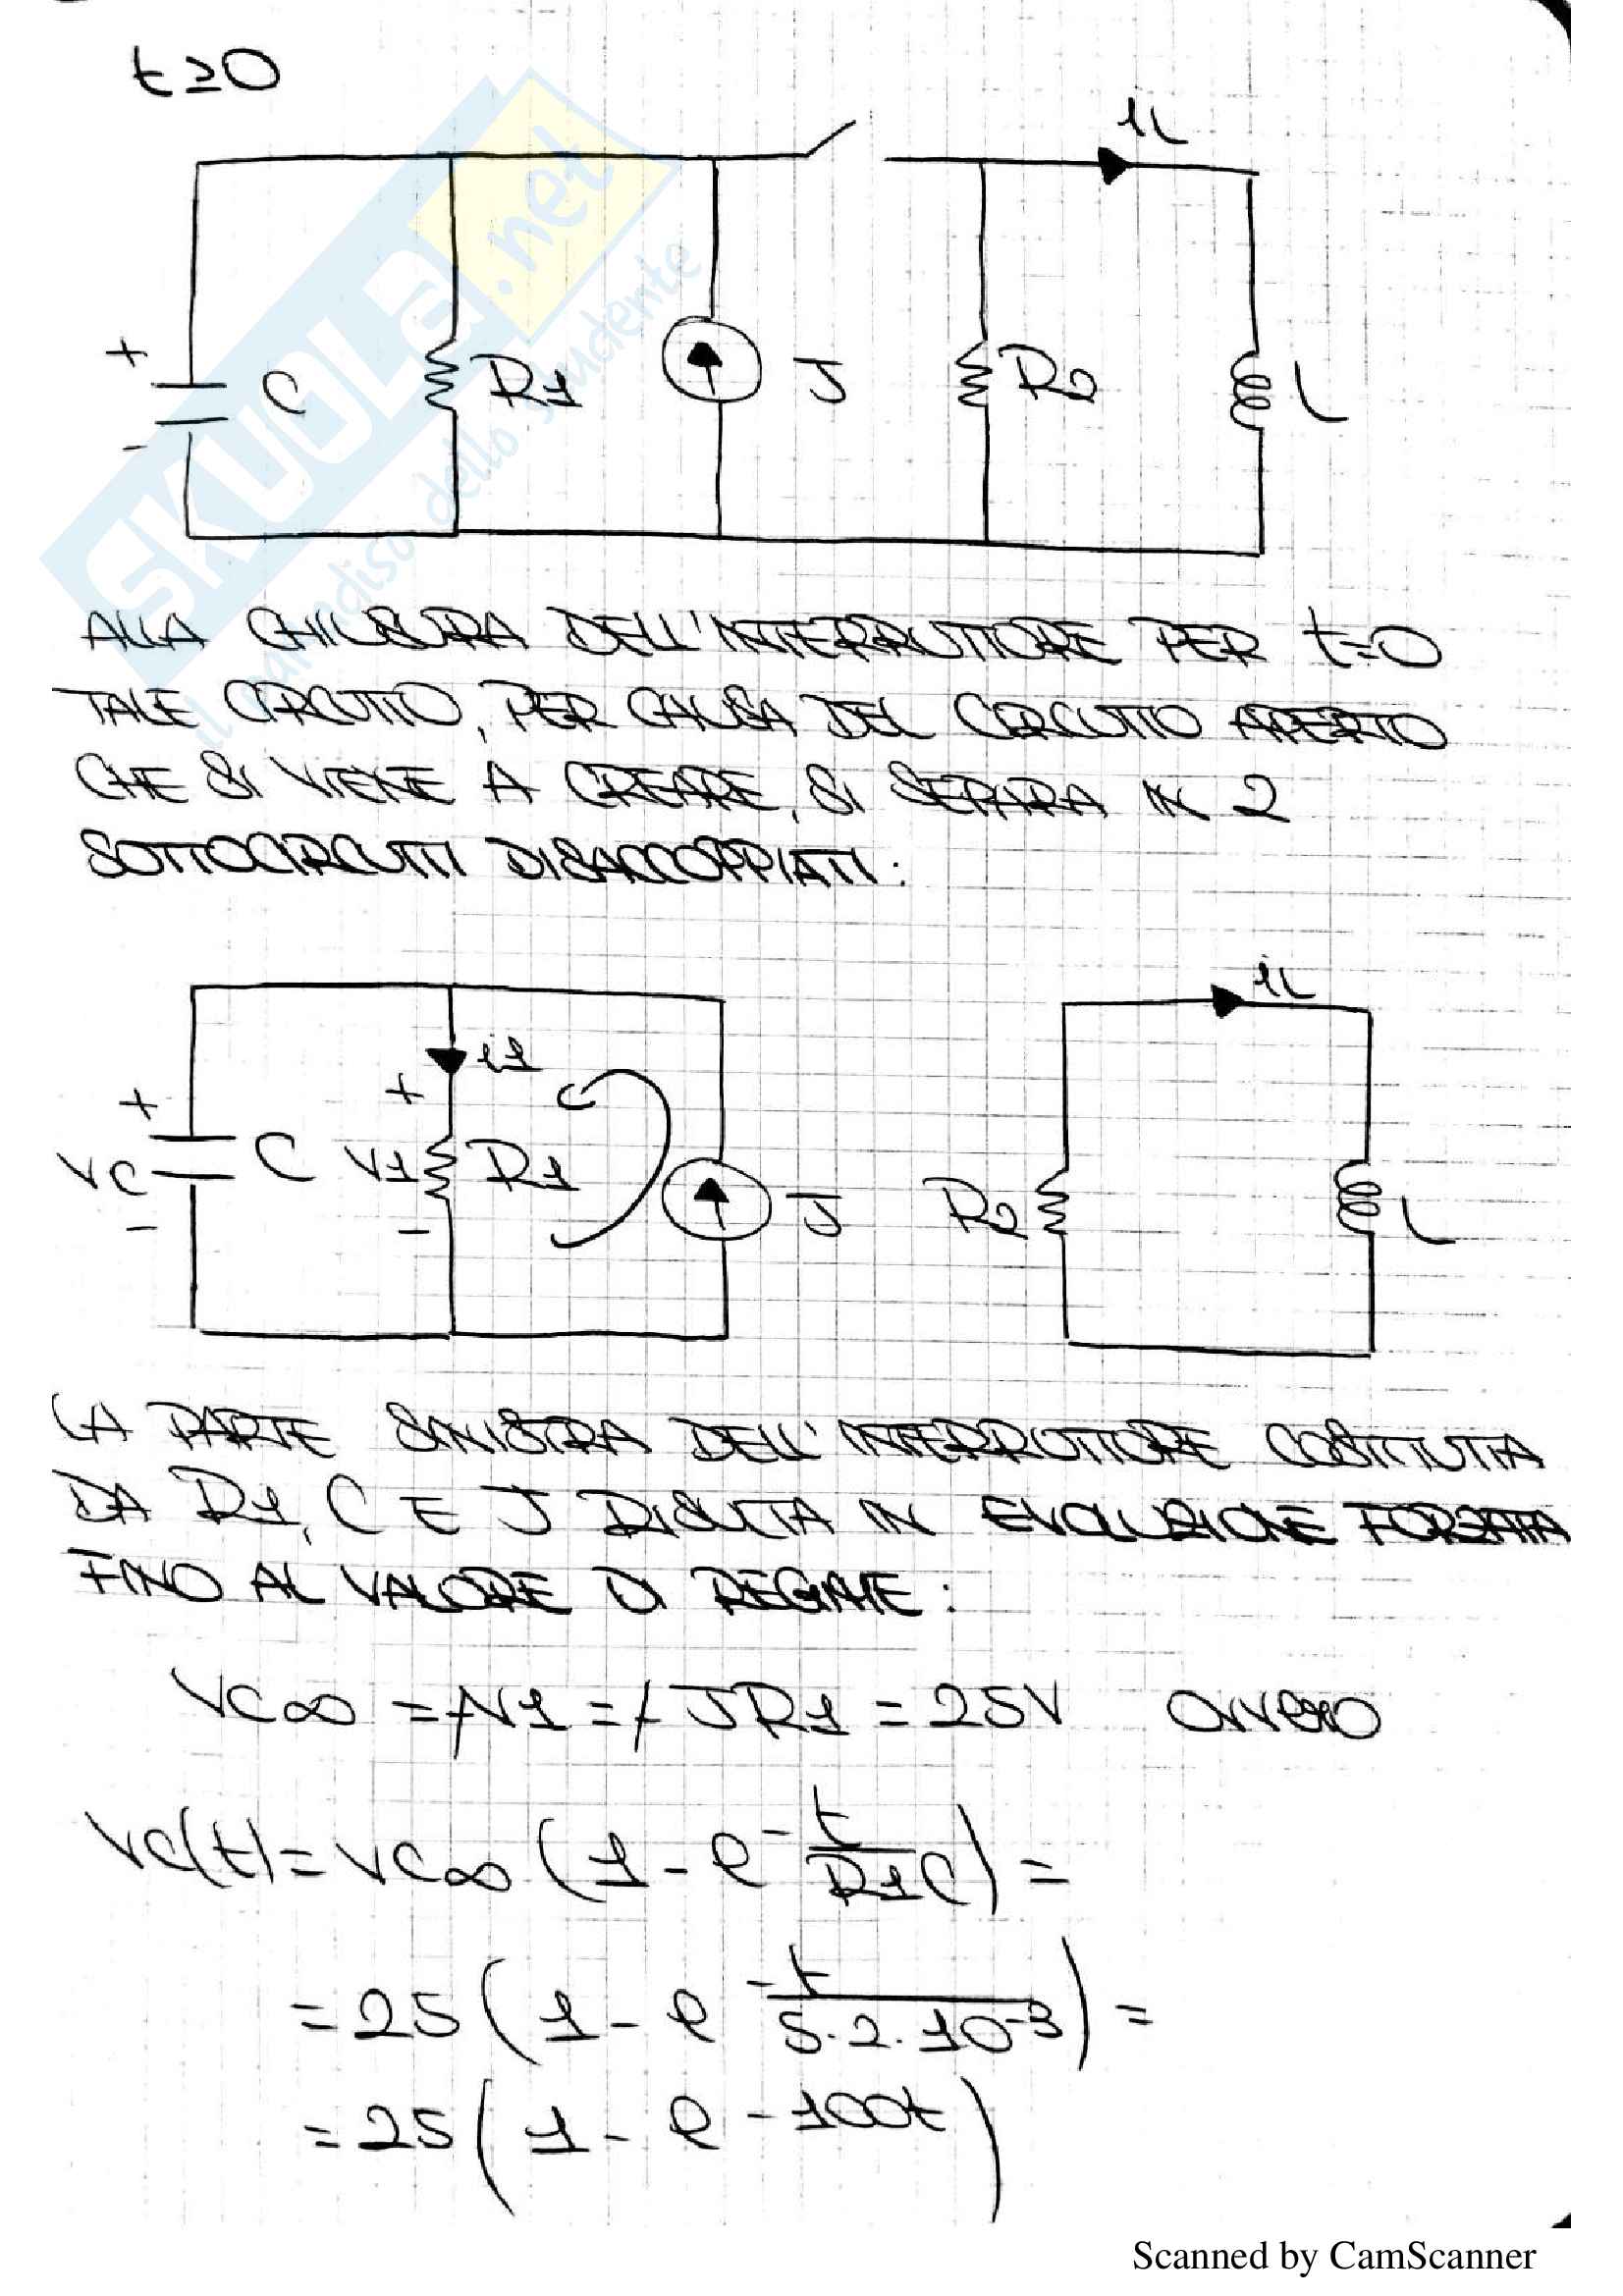 t≥0
iL
+
C
R1
J
R2
L
-
ALLA CHIUSURA DELL'INTERRUTTORE PER t=0
TALE CIRCUITO, PER CAUSA DEL CIRCUITO APERTO
CHE SI VIENE A CREARE, SI SEPARA IN 2
SOTTOCIRCUITI DISACCOPPIATI:
iL
i1
+
+
VC
C
V1
R1
J
R2
L
-
-
LA PARTE SINISTRA DELL'INTERRUTTORE COSTITUITA
DA R1, C E J RISULTA IN EVOLUZIONE FORZATA
FINO AL VALORE DI REGIME:
VC∞ = V1 = JR1 = 25V OVVERO
VC(t) = VC∞ (1 - e^-t/R1C) =
= 25 (1 - e^-t/5·2·10^-3) =
= 25 (1 - e^-100t)
SKUOLA.net
il paradiso dello studente
Scanned by CamScanner